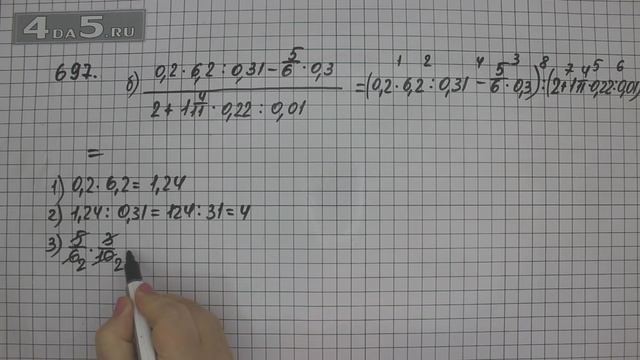 4DA5.RU
697. б) (0,2 · 6,2 : 0,31 − 5/6 · 0,3) / (2 + 1 4/11 · 0,22 : 0,01) = (0,2 · 6,2 : 0,31 − 5/6 · 0,3) : (2 + 1 4/11 · 0,22 : 0,01)
1 2 4 3 8 7 4 5 6
=
1) 0,2 · 6,2 = 1,24
2) 1,24 : 0,31 = 124 : 31 = 4
3) 5/6 2 · 3/10 2